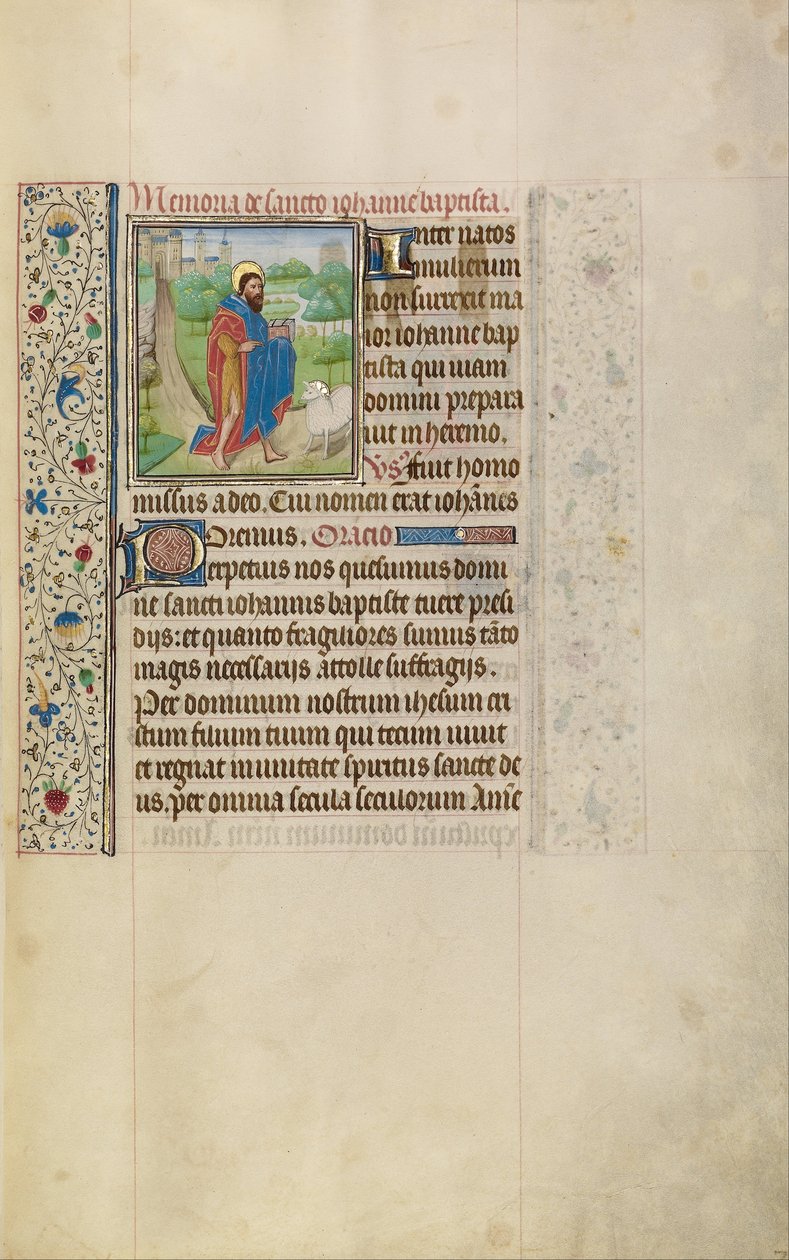 Memoria de sancto iohanne baptista.
Inter natos
mulierum
non surrexit ma
ior iohanne bap
tista qui uiam
domini prepara
uit in heremo.
Vs̄. fuit homo
missus a deo. Cui nomen erat ioh̄anes
Oremus. Oracio
Perpetuis nos quesumus domi
ne sancti iohannis baptiste tuere presi
dijs: et quanto fragiliores sumus tāto
magis necessarijs attolle suffragijs.
Per dominum nostrum ihesum cri
stum filium tuum qui tecum uiuit
et regnat in unitate spiritus sancte de
us. per omnia secula seculorum Amē